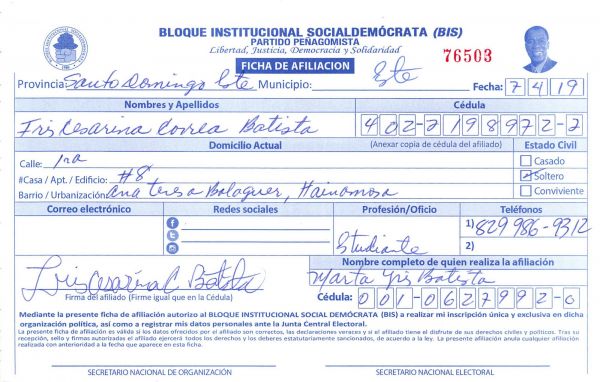 BLOQUE INSTITUCIONAL SOCIALDEMÓCRATA (BIS)
PARTIDO PEÑAGOMISTA
Libertad, Justicia, Democracia y Solidaridad
FICHA DE AFILIACION
76503
Provincia: Santo Domingo Este Municipio: Este Fecha: 7 4 19
Nombres y Apellidos Cédula
Iris Cesarina Correa Batista 402-2198972-2
Domicilio Actual (Anexar copia de cédula del afiliado) Estado Civil
Calle: 1ra Casado
#Casa / Apt. / Edificio: #8 Soltero
Barrio / Urbanización: Ana Teresa Balaguer, Hainamosa Conviviente
Correo electrónico Redes sociales Profesión/Oficio Teléfonos
Estudiante 1) 829 986-9312
2)
Nombre completo de quien realiza la afiliación
Iris Cesarina C Batista Marta Yris Batista
Firma del afiliado (Firme igual que en la Cédula) Cédula: 001-0627992-0
Mediante la presente ficha de afiliación autorizo al BLOQUE INSTITUCIONAL SOCIAL DEMÓCRATA (BIS) a realizar mi inscripción única y exclusiva en dicha
organización política, así como a registrar mis datos personales ante la Junta Central Electoral.
La presente ficha de afiliación es válida si los datos ofrecidos por el afiliado son correctos, las declaraciones veraces y si el afiliado tiene el disfrute de sus derechos civiles y políticos. Tras su
recepción, sello y firmas autorizadas el afiliado ejercerá todos los derechos y los deberes estatutariamente sancionados, de acuerdo a la ley. La presente afiliación anula cualquier afiliación
realizada con anterioridad a la fecha que aparece en esta ficha.
SECRETARIO NACIONAL DE ORGANIZACIÓN SECRETARIO NACIONAL ELECTORAL